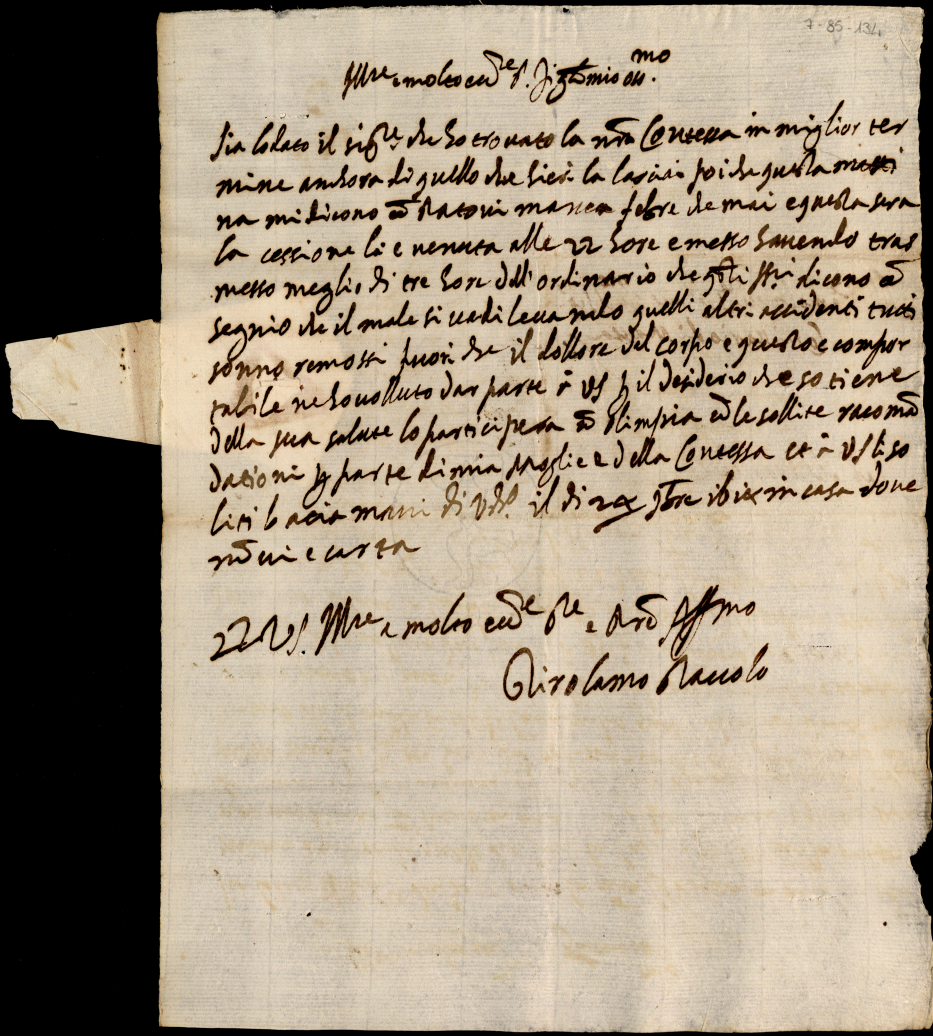 7-85-134
Ill.re e molto ecc.te S. Sig.r mio oss.mo
Sia lodato il sig.re che ho trovato la nr̃a Contessa in miglior ter
mine anchora di quello che hieri la lasciai poi che questa matti
na mi dicono è statovi manca febre che mai e questa sera
la cessione li e venuta alle 22 hore e messo havendo tras
messo meglio di tre hore dell'ordinario che dicono è
segnio che il male si vadi levando quelli altri accidenti tutti
sonno remossi fuori che il dollore del corpo e questo è compor
tabile ne ho volluto dar parte à VS p il desiderio che so tiene
della sua salute lo participera cõ Olimpia cõ le sollite racomã
dationi p parte di mia moglie e della Contessa et à VS li so
liti bacia mani di VS. il di 9bre in casa dove
nõ vi e carta
Di VS. Ill.re e molto ecc.te
Girolamo